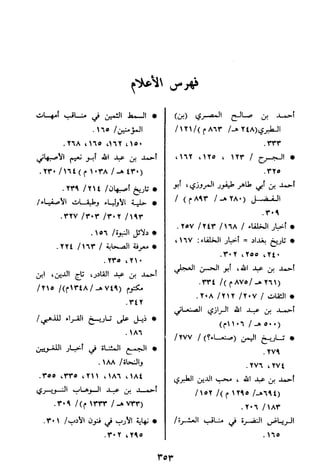 فهرس الأعلام
أحمد بن صالح المصري (بن
الطبري)(٢٤٨ هـ/ ٨٦٣ م)/ ١٢١/
٣٣٣.
* الجرح / ١٢٣ ، ١٢٥ ، ١٦٢ ،
٣٢٥.
أحمد بن أبي طاهر طيفور المروزي، أبو
الفضل (٢٨٠ هـ / ٨٩٣ م) /
٣٠٩.
* أخبار الخلفاء / ١٦٨/ ٢٤٣/ ٢٥٧.
* تاريخ بغداد = أخبار الخلفاء: ١٦٧ ،
٢٤٠ ، ٢٥٥ ، ٣٠٢.
أحمد بن عبد الله، أبو الحسن العجلي
(٢٦١ هـ /٨٧٥ م) / ٣٣٤.
* الثقات / ٢٠٧/ ٢١٢/ ٢٠٨.
أحمد بن عبد الله الرازي الصنعاني
(٥٠٠ هـ / ١١٠٦ م)
* تاريخ اليمن (صنعاء؟) / ٢٧٧ /
٢٧٩.
٢٧٤ ، ٢٧٦.
أحمد بن عبد الله ، محب الدين الطبري
(٦٩٤هـ/ ١٢٩٥ م) / ١٥٢/
١٨٣/ ٢٠٦.
الرياض النضرة في مناقب العشرة/
١٦٥.
* السمط الثمين في مناقب أمهات
المؤمنين/ ١٦٥.
١٥٠ ، ١٦٢ ، ١٦٥ ، ٢٦٨.
أحمد بن عبد الله أبو نعيم الأصبهاني
(٤٣٠ هـ / ١٠٣٨ م) / ١٦٤/ ٢٣٠.
* تاريخ أصبهان/ ٢١٤/ ٢٣٩.
* حلية الأولياء وطبقات الأصفياء/
١٩٣/ ٣٠٢/ ٣٠٣/ ٣٢٧.
* دلائل النبوة/ ١٥٦.
* معرفة الصحابة / ١٦٣/ ٢٢٤.
٢١٠ ، ٢٣٥.
أحمد بن عبد القادر، تاج الدين، ابن
مكتوم (٧٤٩ هـ /١٣٤٨م)/ ٢١٥/
٣٤٢.
* ذيل على تاريخ القراء للذهبي/
١٨٦.
* الجمع المثناة في أخبار اللغويين
والنحاة/ ١٨٨.
١٨٤ ، ١٨٦ ، ٢١١ ، ٣٣٥ ، ٣٥٥.
أحمد بن عبد الوهاب النويري
(٧٣٣ هـ / ١٣٣٣ م)/ ٣٠٩.
* نهاية الأرب في فنون الأدب/ ٣٠١.
٢٩٥ ، ٣٠٢.
٣٥٣